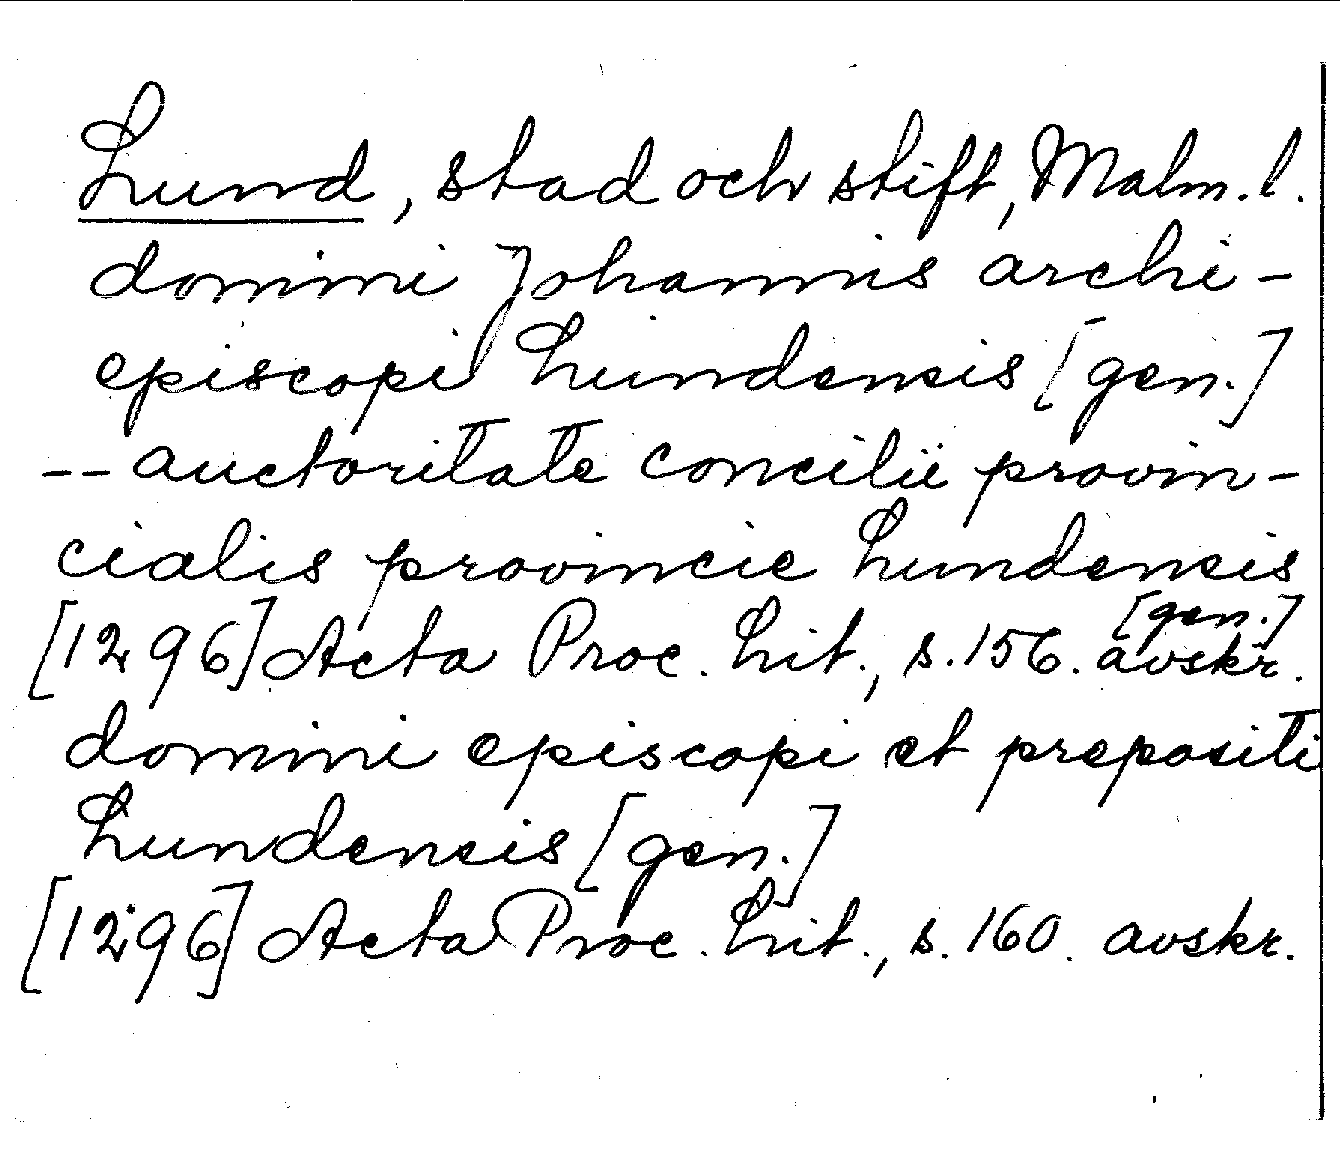 Lund, stad och stift, Malm. l.
domini Johannis archi-
episcopi Lundensis [gen.]
-- auctoritate concilii provin-
cialis provincie Lundensis
[gen.]
[1296] Acta Proc. Lit., s. 156. avskr.
domini episcopi et prepositi
Lundensis [gen.]
[1296] Acta Proc. Lit., s. 160. avskr.